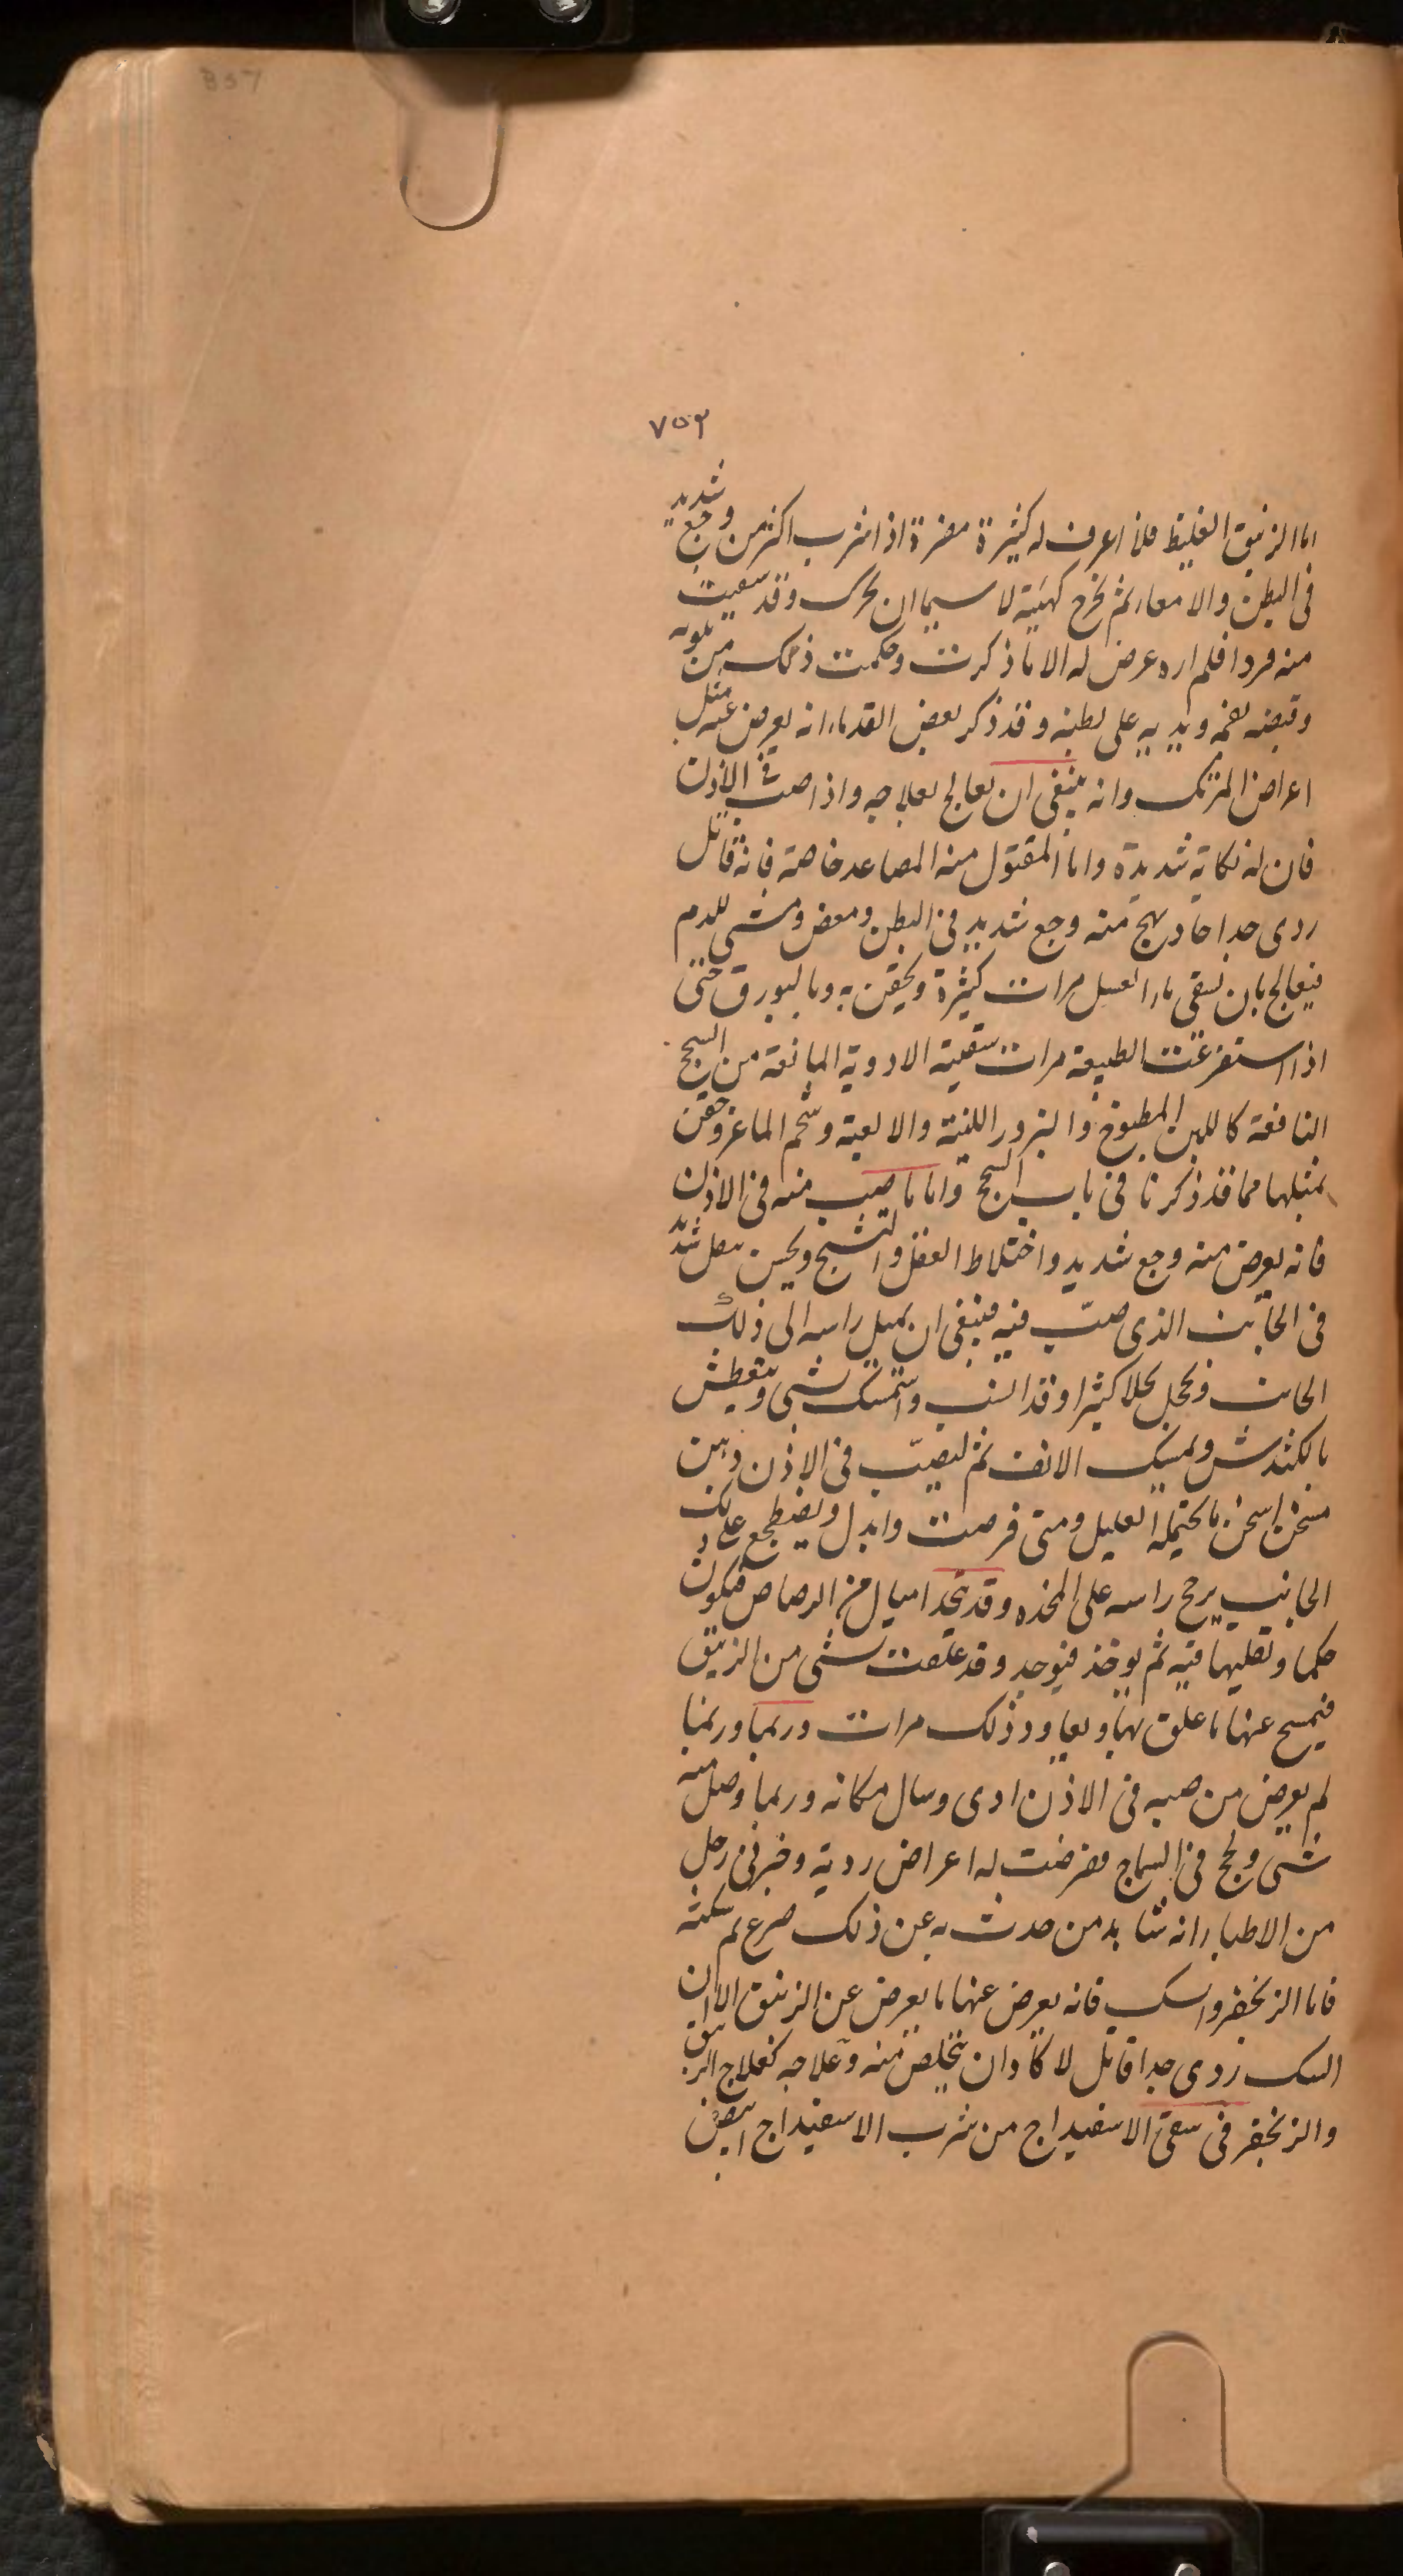 857
٧٥٣
اما الزيبق الغليظ فلا اعرف له كثيرة مضرة اذا شرب اكثر من وجع شديد
فى البطن والامعاء ثم يخرج كهيئة لا سيما ان تحرك وقد سقيت
منه قردا فلم اره عرض له الا ما ذكرت وحكمت ذلك من تلويه
وقبضه بفمه ويديه على بطنه وقد ذكر بعض القدماء انه يعرض عنه مثل
اعراض المرتك وانه ينبغى ان يعالج بعلاجه واذا صب فى الاذن
فان له نكاية شديدة واما المقتول منه المصاعد خاصة فانه قاتل
ردى جدا حاد يهيج منه وجع شديد فى البطن ومغص ومشى للدم
فيعالج بان يسقى ماء العسل مرات كثيرة ويحقن به وبالبورق حتى
اذا استفرغت الطبيعة مرات سقيته الادوية المانعة من السحج
النافعة كاللبن المطبوخ والبزور اللينة والالعبة وشحم الماعز وحقن
بمثلها مما قد ذكرنا فى باب السحج واما ما صب منه فى الاذن
فانه يعرض منه وجع شديد واختلاط العقل والتشنج ويحس بثقل شديد
فى الجانب الذى صب فيه فينبغى ان يميل راسه الى ذلك
الجانب ويحجل حجلا كثيرا وقد استمسك بشى ويتعطش
بالكندش ويمسك الانف ثم ليصب فى الاذن دهن
مسخن اسخن ما يحتمله العليل ومتى فرصت وابدل ويضطجع على ذلك
الجانب يرجح راسه على المخده وقد يتخذ اميال من الرصاص فيكون
حكما وتقليبها فيه ثم يوخذ فيوجد وقد علقت بشى من الزيبق
فيمسح عنها ما علق بها ويعاود ذلك مرات وربما وربما
لم يعرض من صبه فى الاذن اذى وسال مكانه وربما وصل منه
شى ولج فى السماخ فعرضت له اعراض ردية وخبرنى رجل
من الاطباء انه شاهد من حدث به عن ذلك صرع ثم سكتة
فاما الزنجفر والسك فانه يعرض عنها ما يعرض عن الزيبق الا ان
السك ردى جدا قاتل لا كاد ان يتخلص منه وعلاجه كعلاج الزيبق
والزنجفر فى سقى الاسفيداج من شرب الاسفيداج ابيض